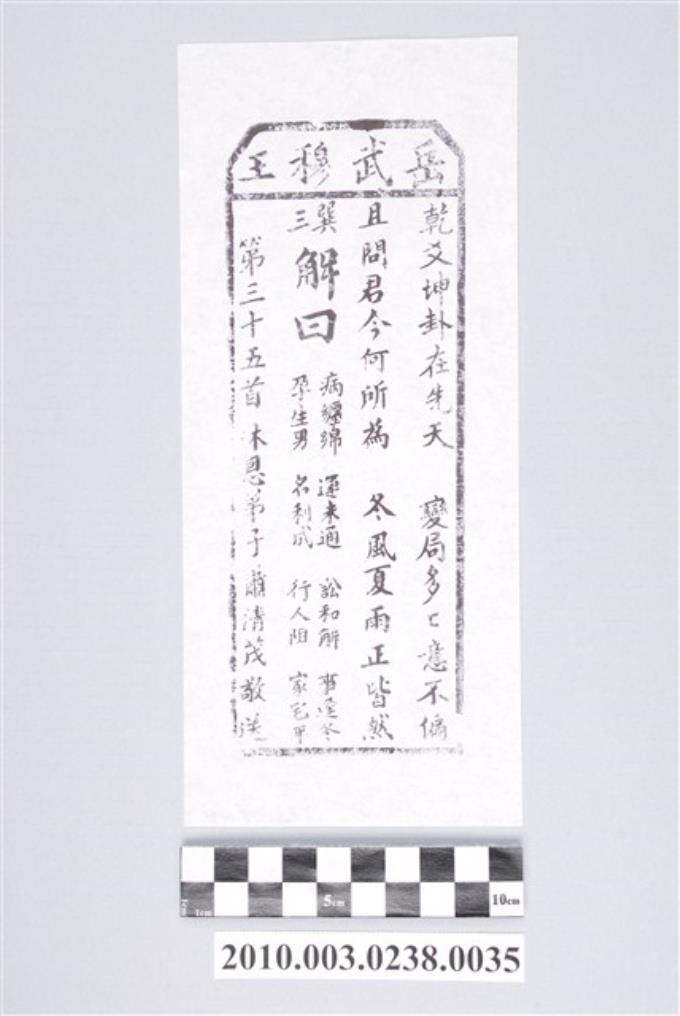 岳武穆王
乾爻坤卦在先天 變局多〻意不偏
且問君今何所為 冬風夏雨正皆然
巽三
解曰
病纏綿 運未通 訟和解 事逢冬
孕生男 名利成 行人阻 家宅平
第三十五首 沐恩弟子蕭清茂敬送
1cm 5cm 10cm
2010.003.0238.0035